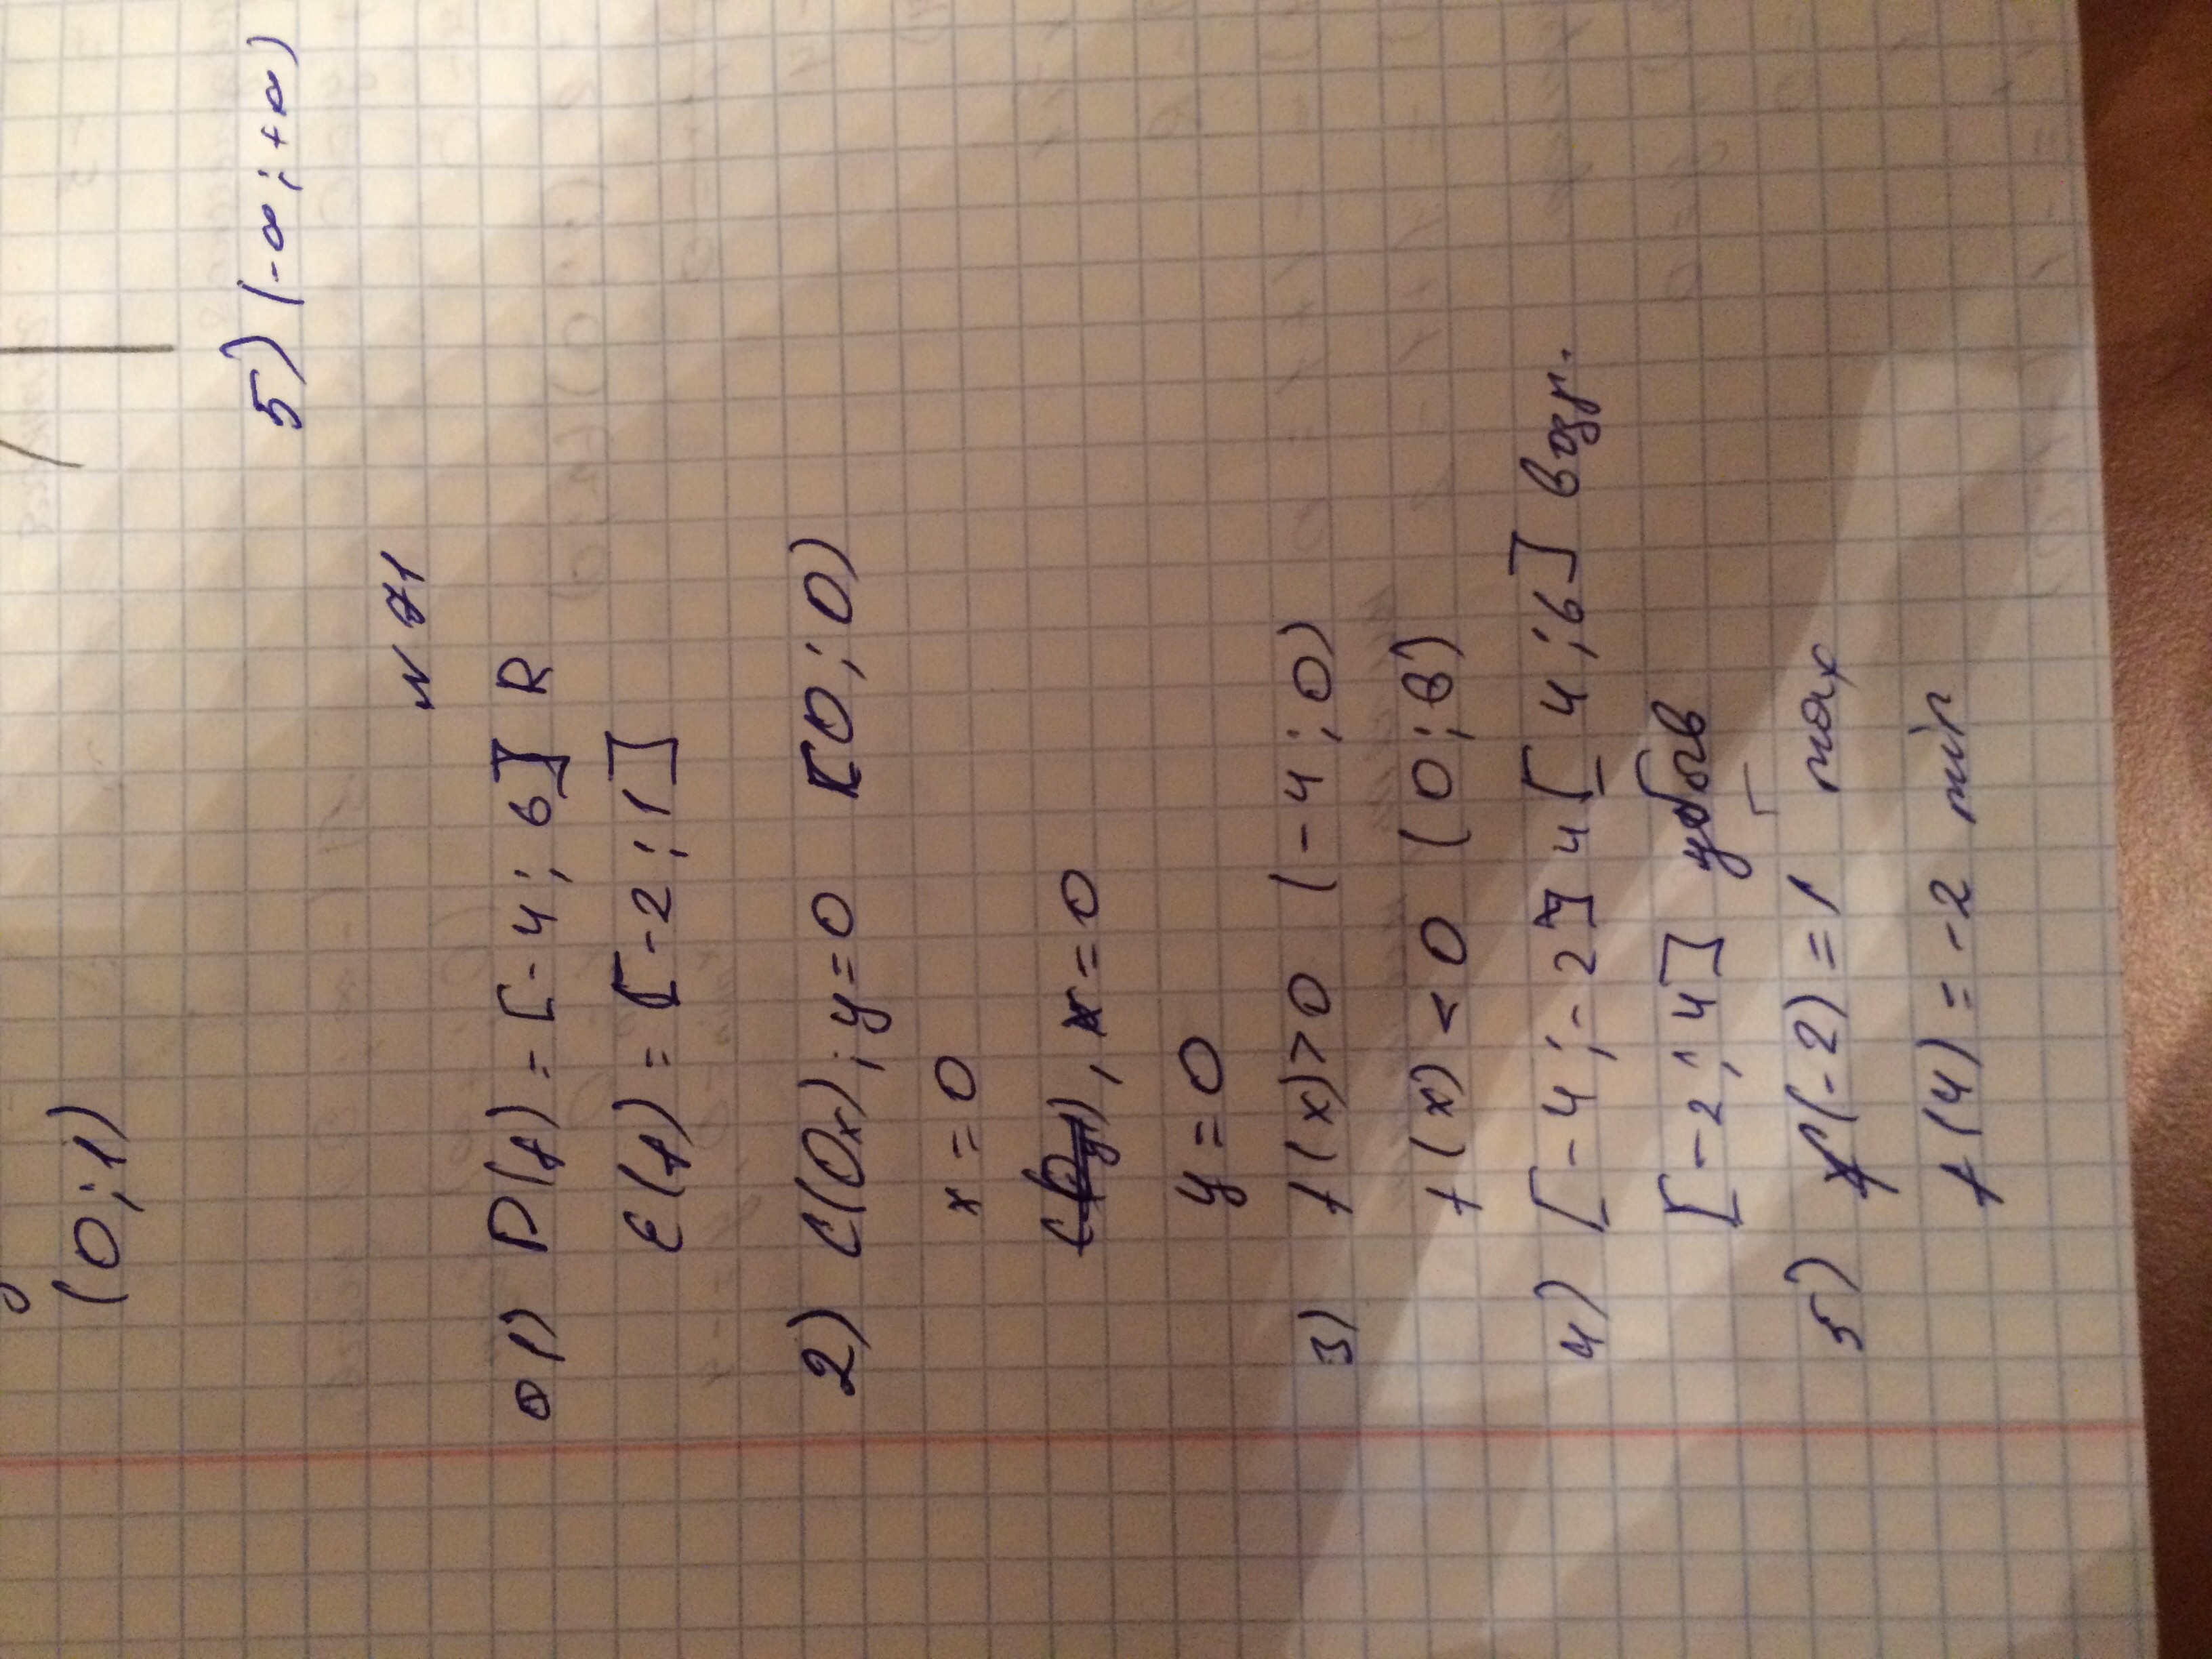 (0;1)
5) (-∞;+∞)
N 71
а 1) D(f) = [-4; 6] R
E(f) = [-2; 1]
2) С(Ox); y=0 (0; 0)
x = 0
x=0
y=0
3) f(x)>0 (-4; 0)
f(x) <0 (0; 6)
4) [-4; -2] и [4; 6] возр.
[-2; 4] убыв
5) f(-2) = 1 max
f(4) = -2 min